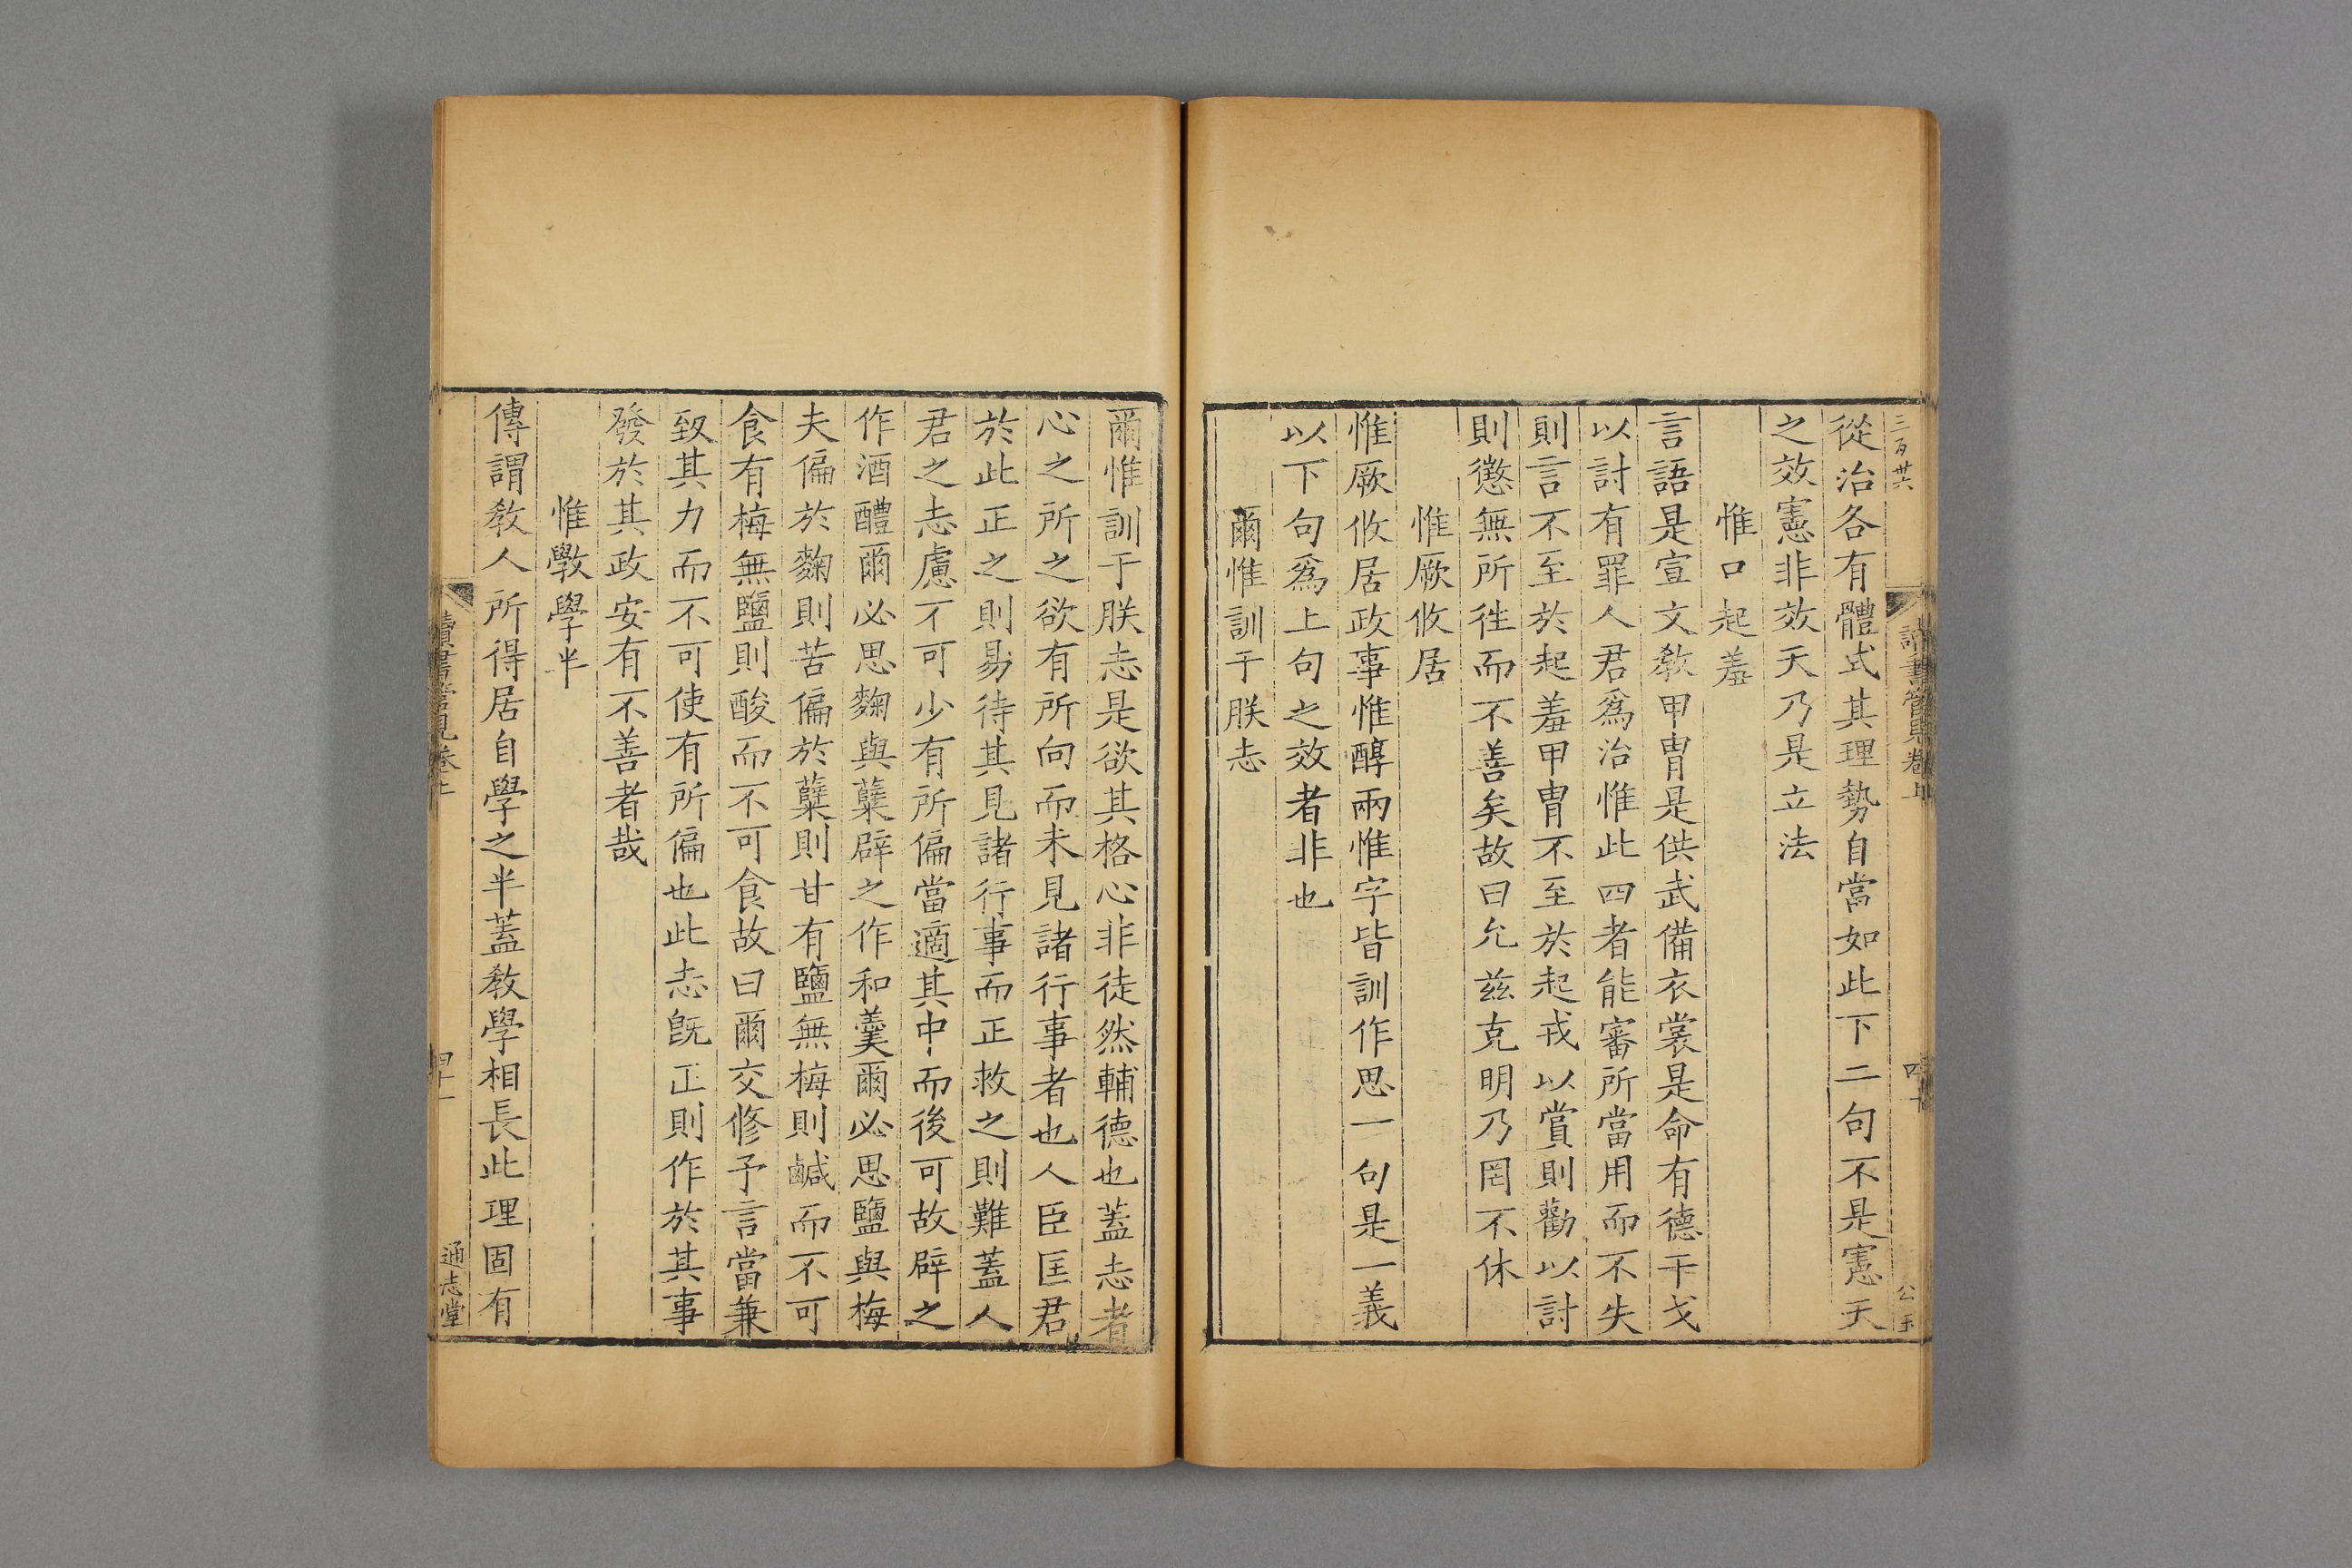 三百廿六
從治各有體式其理勢自當如此下二句不是憲天
之效憲非效天乃是立法
惟口起羞
言語是宣文敎甲冑是供武備衣裳是命有德干戈
以討有罪人君爲治惟此四者能審所當用而不失
則言不至於起羞甲冑不至於起戎以賞則勸以討
則懲無所徃而不善矣故曰允兹克明乃罔不休
惟厥攸居
惟厥攸居政事惟醇兩惟字皆訓作思一句是一義
以下句爲上句之效者非也
爾惟訓于朕志
爾惟訓于朕志是欲其格心非徒然輔德也蓋志者
心之所之欲有所向而未見諸行事者也人臣匡君
於此正之則易待其見諸行事而正救之則難蓋人
君之志慮不可少有所偏當適其中而後可故辟之
作酒醴爾必思麴與糵辟之作和羹爾必思鹽與梅
夫偏於麴則苦偏於糵則甘有鹽無梅則鹹而不可
食有梅無鹽則酸而不可食故曰爾交修予言當兼
致其力而不可使有所偏也此志旣正則作於其事
發於其政安有不善者哉
惟斆學半
傳謂敎人所得居自學之半蓋敎學相長此理固有
讀書管見卷上
通志堂